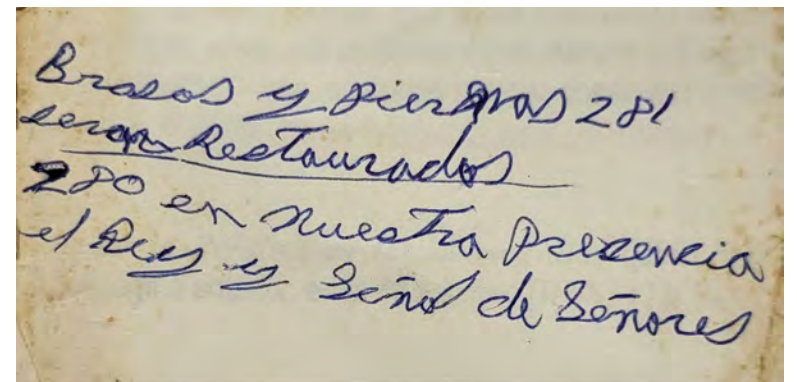 Brasos y Piernas 281
seran Restaurados
280 en nuestra Presencia
el Rey y Señol de Señores